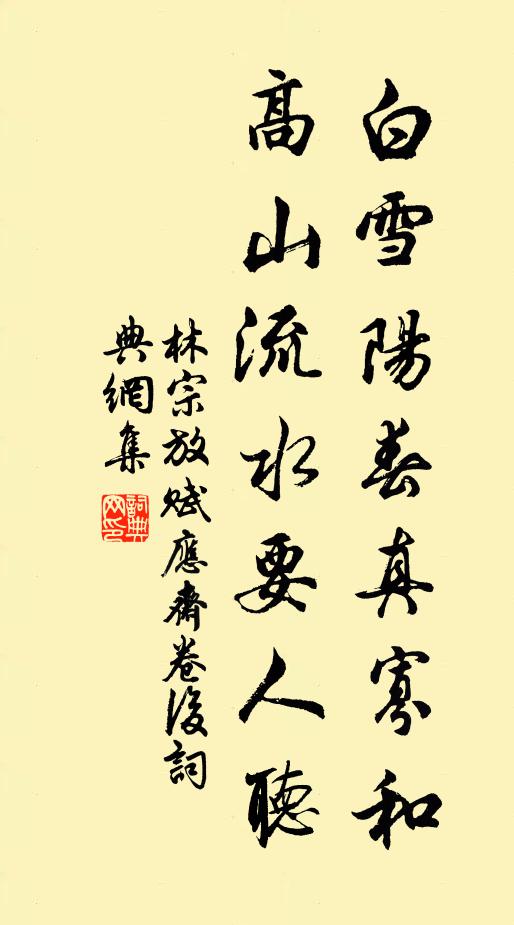 白雪陽春真寡和
高山流水要人聽
林宗放賦應齋卷後詞
典網集
詞典
网印